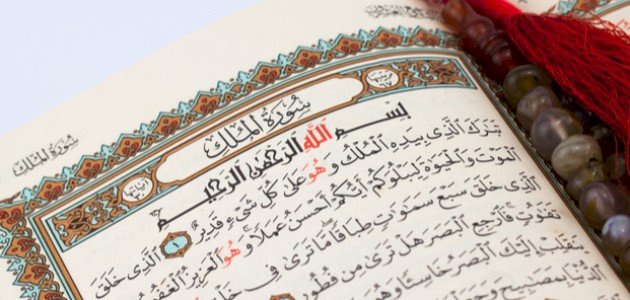 سُورَةُ الْمُلْكِ
سُورَةُ الْمُلْكِ
بِسْمِ اللَّهِ الرَّحْمَٰنِ الرَّحِيمِ
تَبَٰرَكَ ٱلَّذِى بِيَدِهِ ٱلْمُلْكُ وَهُوَ عَلَىٰ كُلِّ شَىْءٍ قَدِيرٌ ١ ٱلَّذِى خَلَقَ
ٱلْمَوْتَ وَٱلْحَيَوٰةَ لِيَبْلُوَكُمْ أَيُّكُمْ أَحْسَنُ عَمَلًا وَهُوَ ٱلْعَزِيزُ ٱلْغَفُورُ
ٱلَّذِى خَلَقَ سَبْعَ سَمَٰوَٰتٍ طِبَاقًا مَّا تَرَىٰ فِى خَلْقِ
تَفَٰوُتٍ فَٱرْجِعِ ٱلْبَصَرَ هَلْ تَرَىٰ مِن فُطُورٍ
يَنقَلِبْ إِلَيْكَ ٱلْبَصَرُ خَاسِئًا وَهُوَ
ٱلدُّنْيَا بِمَصَٰبِيحَ